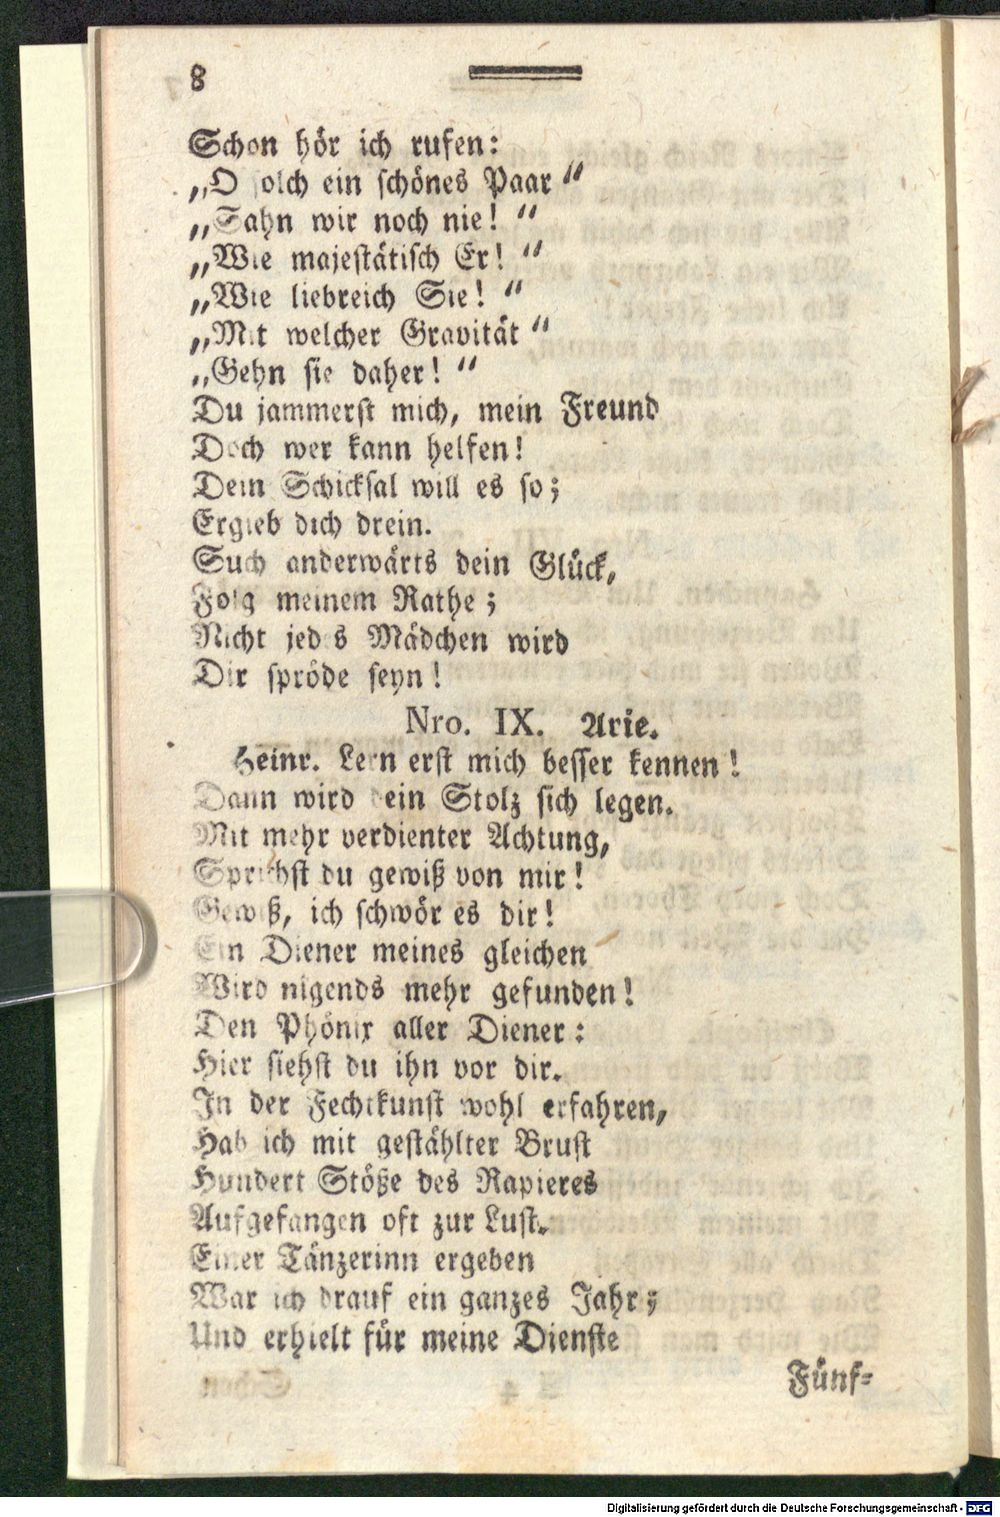 8
Schon hör ich rufen:
„O solch ein schönes Paar“
„Sahn wir noch nie! “
„Wie majestätisch Er! “
„Wie liebreich Sie! “
„Mit welcher Gravität“
„Gehn sie daher! “
Du jammerst mich, mein Freund
Doch wer kann helfen!
Dein Schicksal will es so;
Ergieb dich drein.
Such anderwärts dein Glück,
Folg meinem Rathe;
Nicht jedes Mädchen wird
Dir spröde seyn!
Nro. IX. Arie.
Heinr. Lern erst mich besser kennen!
Dann wird dein Stolz sich legen.
Mit mehr verdienter Achtung,
Sprichst du gewiß von mir!
Gewiß, ich schwör es dir!
Ein Diener meines gleichen
Wird nigends mehr gefunden!
Den Phönix aller Diener:
Hier siehst du ihn vor dir.
In der Fechtkunst wohl erfahren,
Hab ich mit gestählter Brust
Hundert Stöße des Rapieres
Aufgefangen oft zur Lust.
Einer Tänzerinn ergeben
War ich drauf ein ganzes Jahr;
Und erhielt für meine Dienste
Fünf-
Digitalisierung gefördert durch die Deutsche Forschungsgemeinschaft - DFG